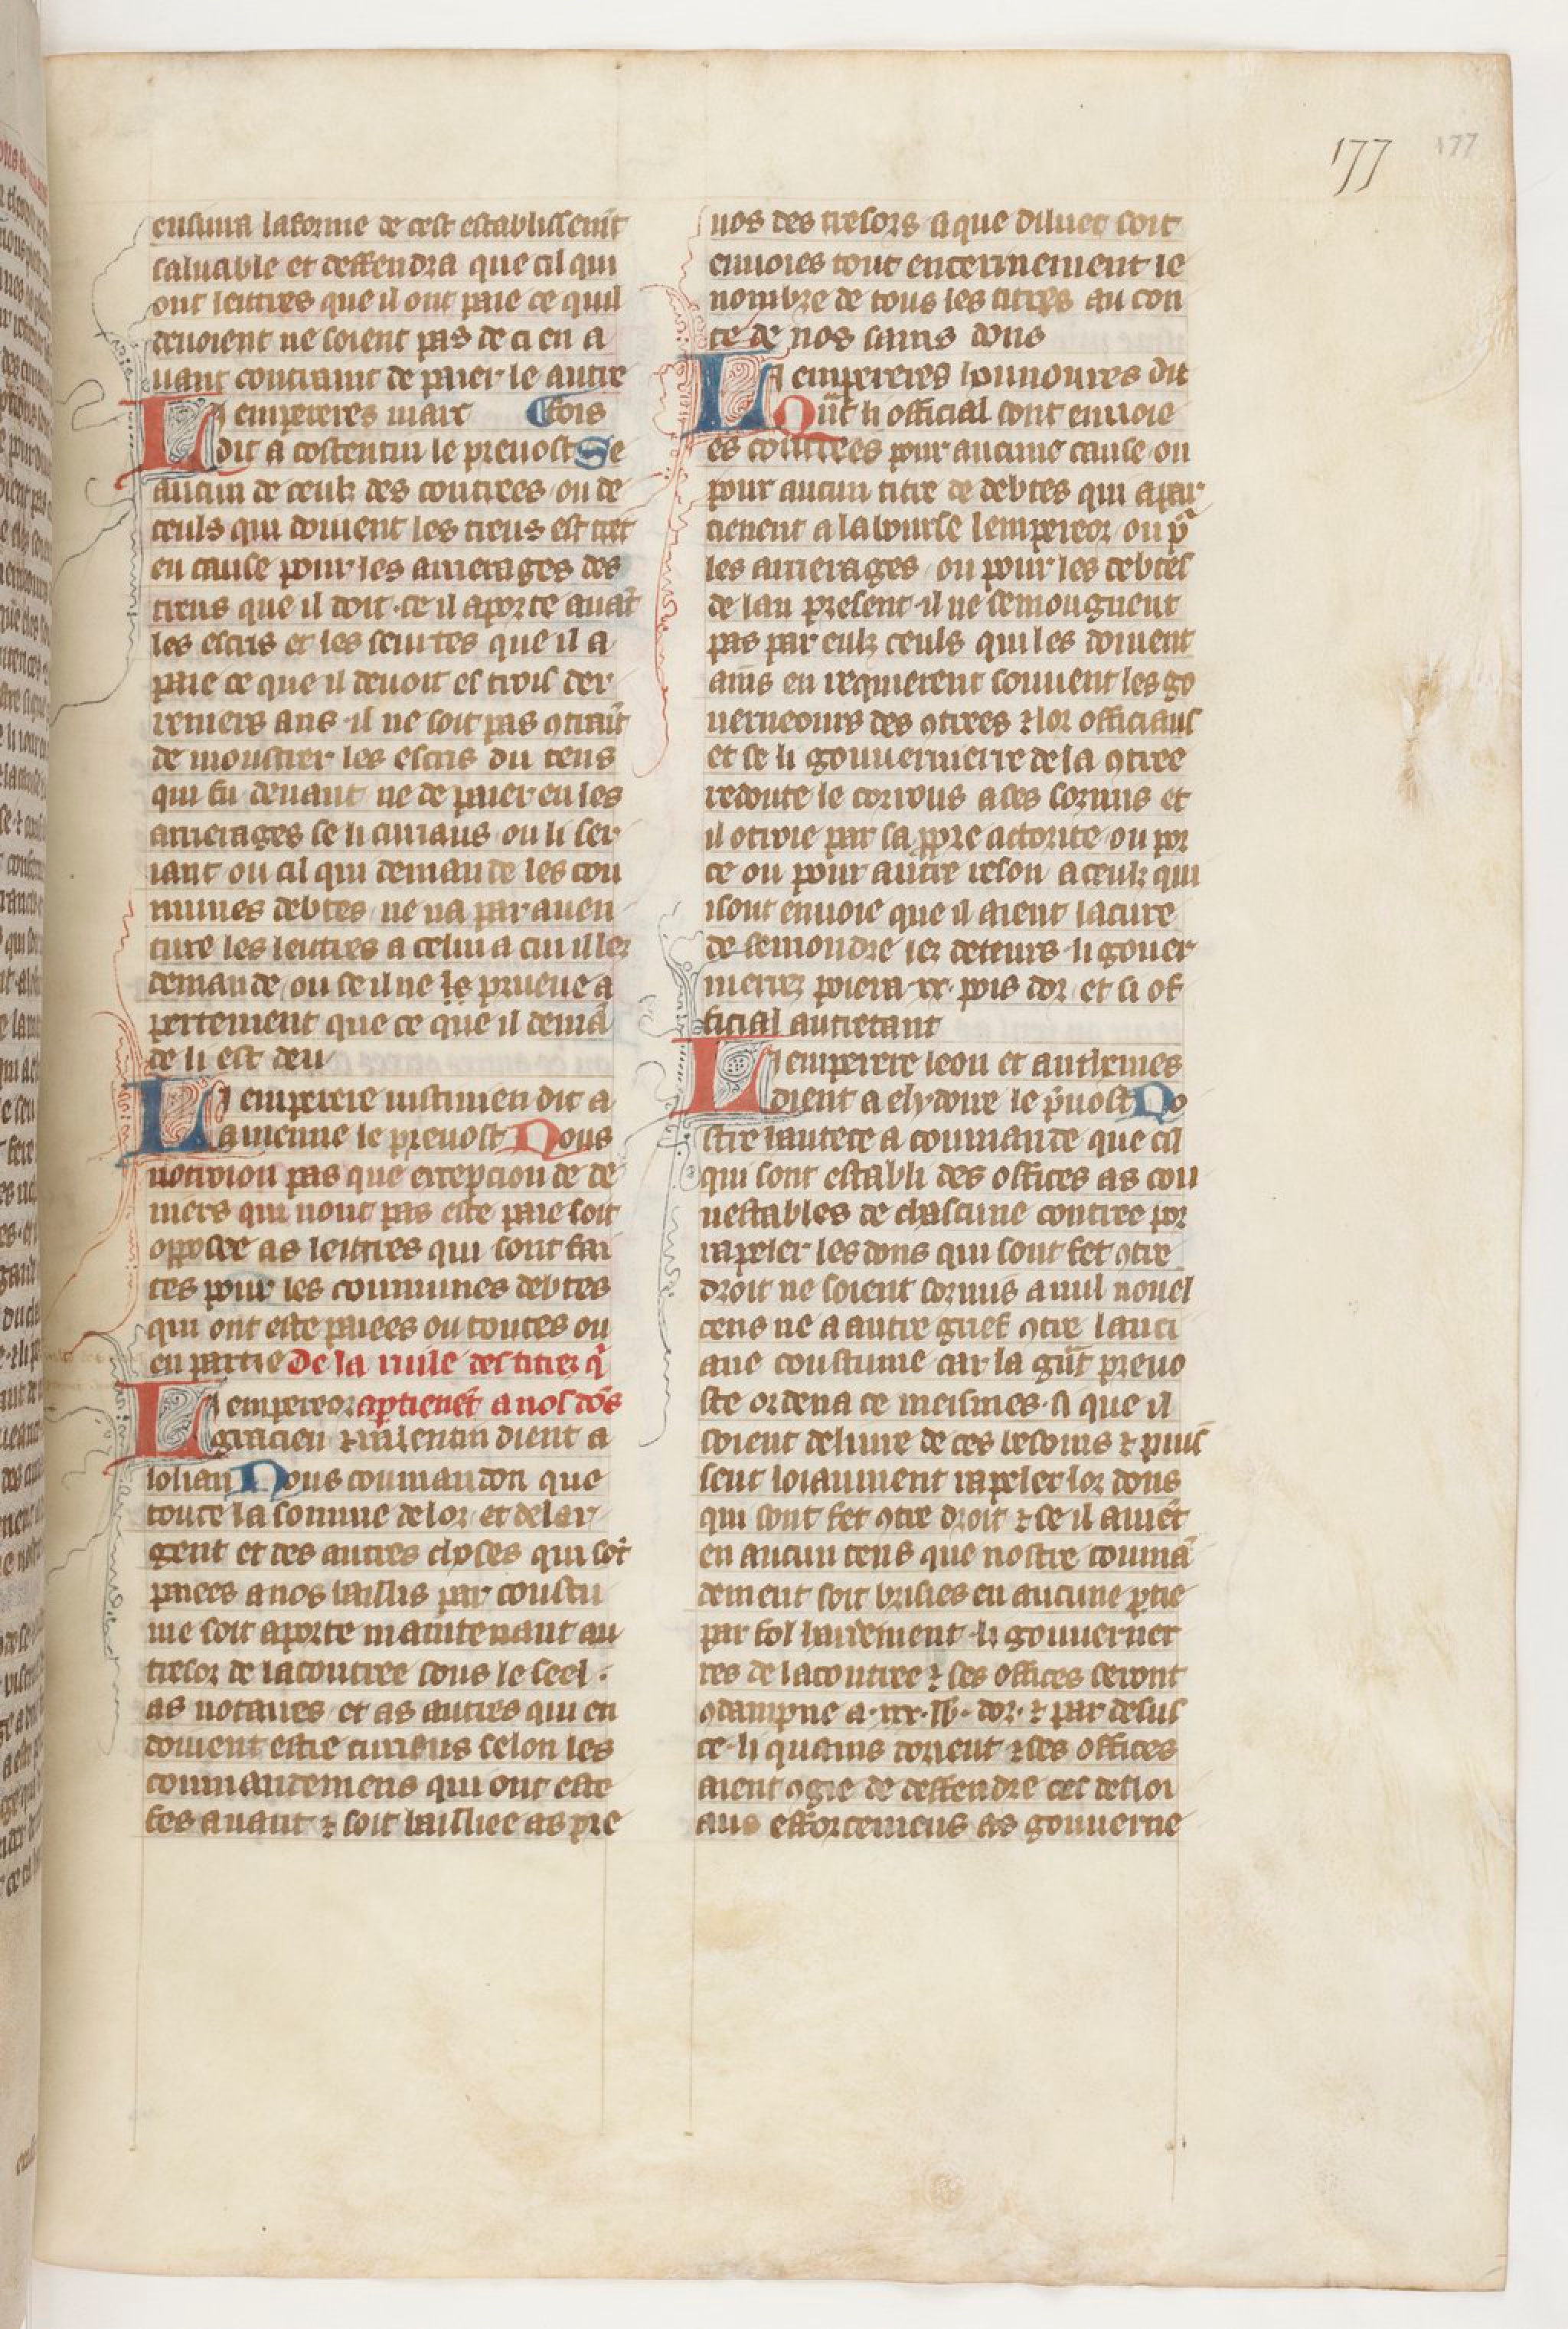 177
177
ensuira la forme de cest establissemt̄
saluable et deffendra que cil qui
ont lettres que il ont paie ce quil
deuoient ne soient pas de ci en a
uant contraint de paier le autre
Li empereres marc fois
dit a costentin le preuost Se
aucun de ceulz des contrees ou de
ceuls qui doiuent les treus est tret
en cause pour les arrerages des
treus que il doit · se il aporte auāt
les escris et les seurtes que il a
paie ce que il deuoit es trois der
reniers ans · il ne soit pas ꝯtraīt
de moustrer les escris du tens
qui fu deuant ne de paier en les
arrerages se li curiaus ou li ser
iant ou cil qui demande les cou
munes debtes ne ua par auen
ture les lettres a celui a cui il les
demande ou se il ne le prueue a
pertement que ce que il demā
de li est deu
Li emperere iustinien dit a
a menne le preuost Nous
uotroion pas que excepcion de de
niers qui nont pas este paie soit
opposee as lettres qui sont fai
tes pour les communes debtes
qui ont este paiees ou toutes ou
en partie De la riule des titres q̄
Li empereor aptienēt a nos dōs
gracien ⁊ ualentin dient a
iolian Nous coumandon que
toute la somme de lor et de lar
gent et des autres choses qui sōt
paiees a nos baillis par coustu
me soit aporte maintenant au
tresor de la contree sous le seel ·
as notaires et as autres qui en
doiuent estre curieus selon les
coumandemens qui ont este
fes auant ⁊ soit bailliee as pre
uos des tresors si que diluec soit
enuoies tout enterinement le
nombre de tous les titres au con
te de nos sains dons
Li empereres hounoures dit
Qūt li official sont enuoie
es contrees pour aucune cause ou
pour aucun titre de debtes qui apar
tienent a la bourse lempereor ou p̄
les arrerages ou pour les debtes
de lan present · il ne semoignent
pas par eulz ceuls qui les doiuent
ains en requierent souuent les go
uerneours des ꝯtrees ⁊ lor officiaus
et se li gouuernerre de la ꝯtree
redoute le corrous a ses sornus et
il otroie par sa propre actorite ou por
ce ou pour autre reson a ceulz qui
i sont enuoie que il aient la cure
de semondre les deteurs · li gouer
nerrez poiera ·xx· pois dor et si of
ficial autretant
Li emperere leon et anthemes
dient a elydoire le p̄uost No
stre hautece a coumande que cil
qui sont establi des offices as con
nestables de chascune contree por
rapeler les dons qui sont fet ꝯtre
droit ne soient sornus a nul nouel
cens ne a autre grief ꝯtre lanci
ane coustume car la gūt preuo
ste ordena ce meismes · si que il
soient deliure de ces besoins ⁊ puis
sent loiaument rapeler lor dons
qui sont fet ꝯtre droit ⁊ se il auiēt
en aucun tens que nostre coumā
dement soit brisies en aucune ptie
par fol hardement · li gouuerner
res de la contree ⁊ ses offices seront
ꝯdampne a ·xx· lb · dor · ⁊ par desus
ce · li quams dorient ⁊ ses offices
aient ꝯgie de deffendre ces desloi
aus efforcemens as gouuerne